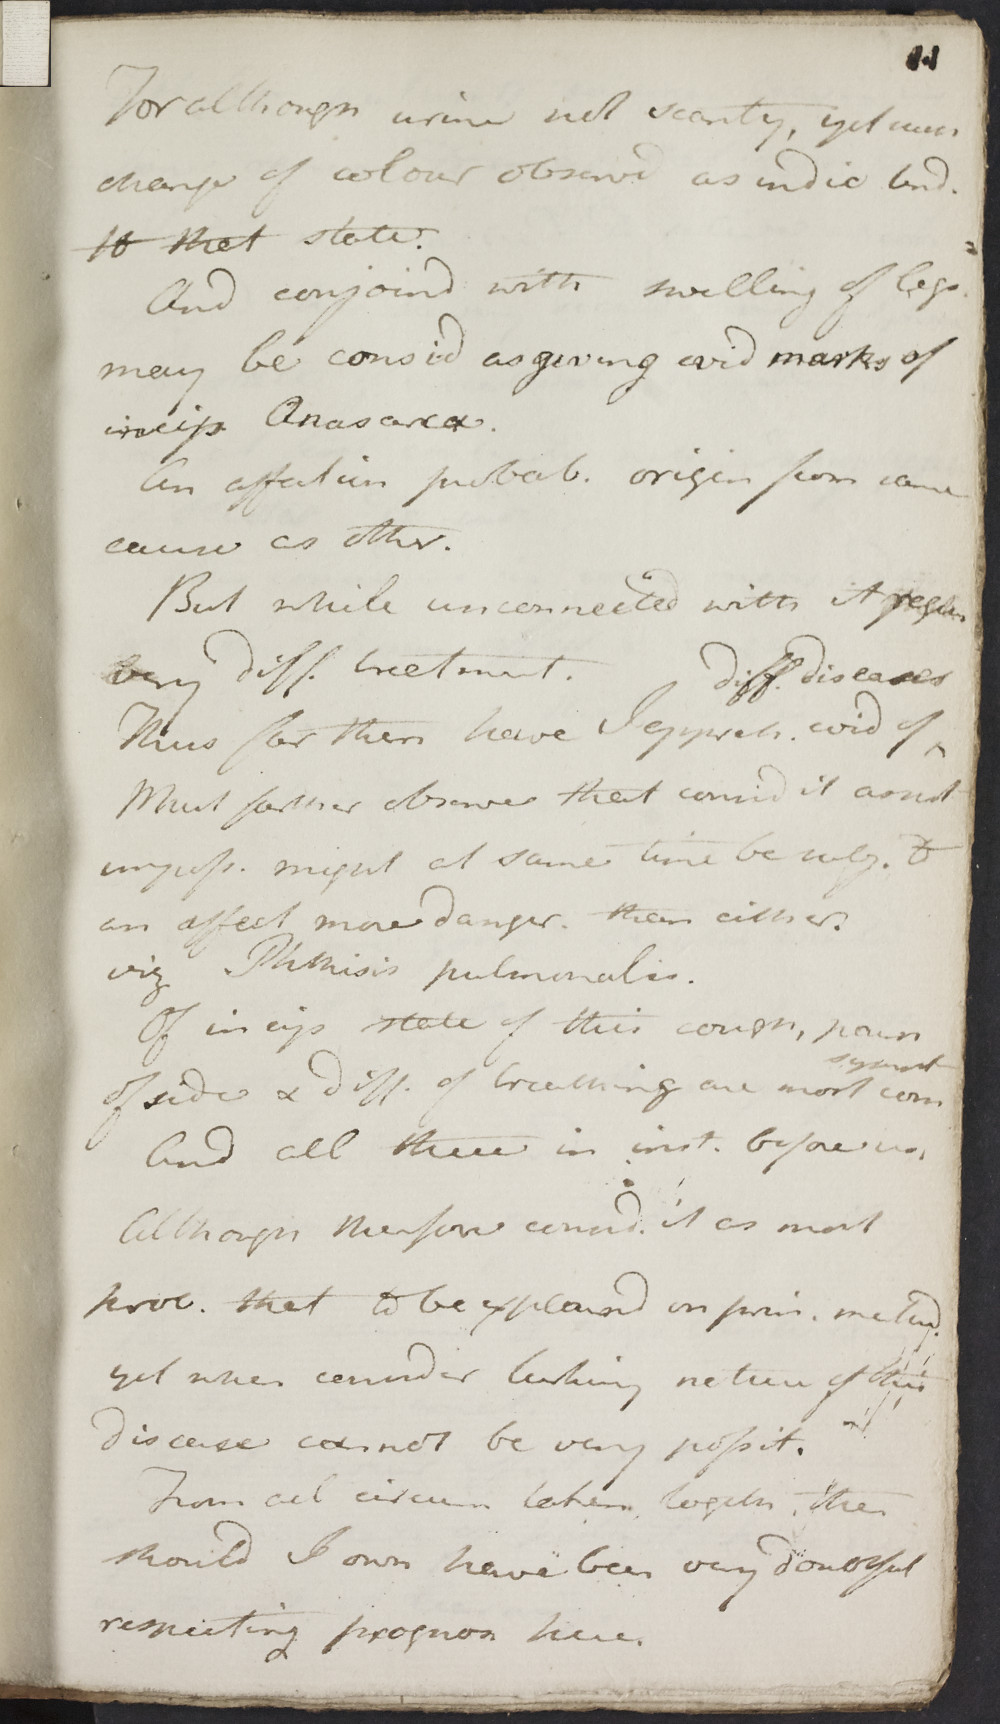 11
For although urine not scanty, yet such
change of colour observd as indic tend.
to that state.
And conjoind with swelling of legs.
may be consid as giving evid marks of
incip Anasarca.
An affection probab. origin from same
cause as other.
But while unconnected with it requir
very diff. treatment.
diff. diseases
Thus far then have I appreh. evid of ^
Must farther observe that consid it as not
imposs. might at same time be subj. to
an affect more danger. than either.
viz Phthisis pulmonalis.
Of incip state of this cough, pain
sympt
of side & diff. of breathing are most com
And all these in inst. before us.
Although therefore consid. it as most
prob. that to be explaind on prin. mentd.
yet when consider lurking nature of this
disease cannot be very posit.
From all circum taken togeth. then
should I own have been very doubtful
respecting prognos here.